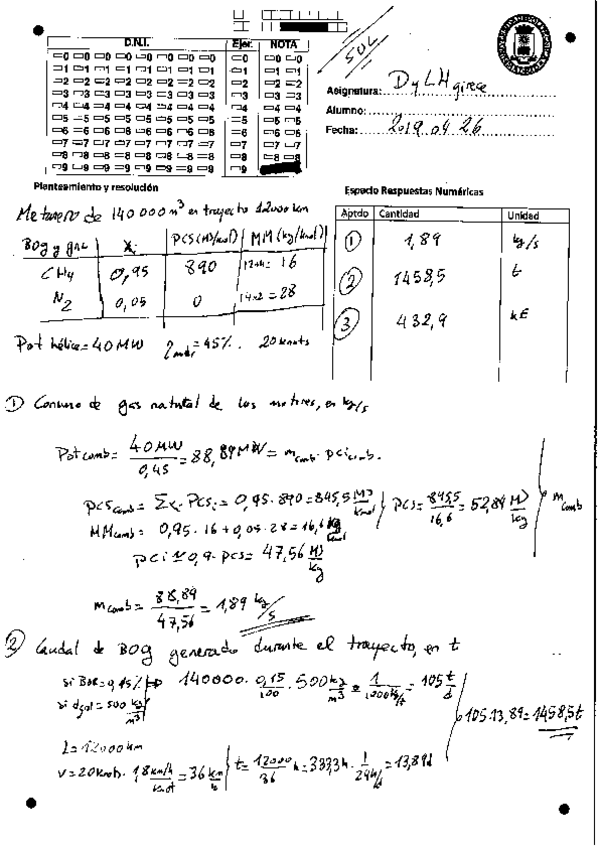 D.N.I. Ejer. NOTA
0 0 0 0 0 0 0 0 0 0
1 1 1 1 1 1 1 1 1 1
2 2 2 2 2 2 2 2 2 2
3 3 3 3 3 3 3 3 3 3
4 4 4 4 4 4 4 4 4 4
5 5 5 5 5 5 5 5 5 5
6 6 6 6 6 6 6 6 6 6
7 7 7 7 7 7 7 7 7 7
8 8 8 8 8 8 8 8 8 8
9 9 9 9 9 9 9 9 9
SOL
Asignatura: DyLH
Alumno:
Fecha: 2019 04 26
Planteamiento y resolución
Metanero de 140000m³ en trayecto 12000 km
BOG y gnc | Xi | PCS (MJ/kmol) | MM (kg/kmol)
CH4 | 0,95 | 890 | 12+4= 16
N2 | 0,05 | 0 | 14x2 = 28
Pot hélice = 40 MW ηmotr = 45%. 20 knots
Espacio Respuestas Numéricas
Aptdo Cantidad Unidad
① 1,89 kg/s
② 1458,5 t
③ 432,9 k€
① Consumo de gas natural de los motores, en kg/s
Pot comb = 40 MW / 0,45 = 88,89 MW = mcomb · PCi comb.
PCS comb = Σxi · PCSi = 0,95 · 890 = 845,5 MJ/kmol } PCS = 845,5 / 16,6 = 52,84 MJ/kg } mcomb
MM comb = 0,95 · 16 + 0,05 · 28 = 16,6 kg/kmol
PCi ≃ 0,9 · PCS = 47,56 MJ/kg
mcomb = 88,89 / 47,56 = 1,89 kg/s
② Caudal de BOG generado durante el trayecto, en t
si BOR = 0,15% ⇒ 140000 · 0,15/100 · 500 kg/m³ · 1/1000 kg/t = 105 t/d
si dgnl = 500 kg/m³
105 · 13,89 = 1458,5 t
L = 12000 km
v = 20 knots · 1,8 km/h/knot = 36 km/h } t = 12000/36 h = 333,3 h · 1/24 h/d = 13,89 d